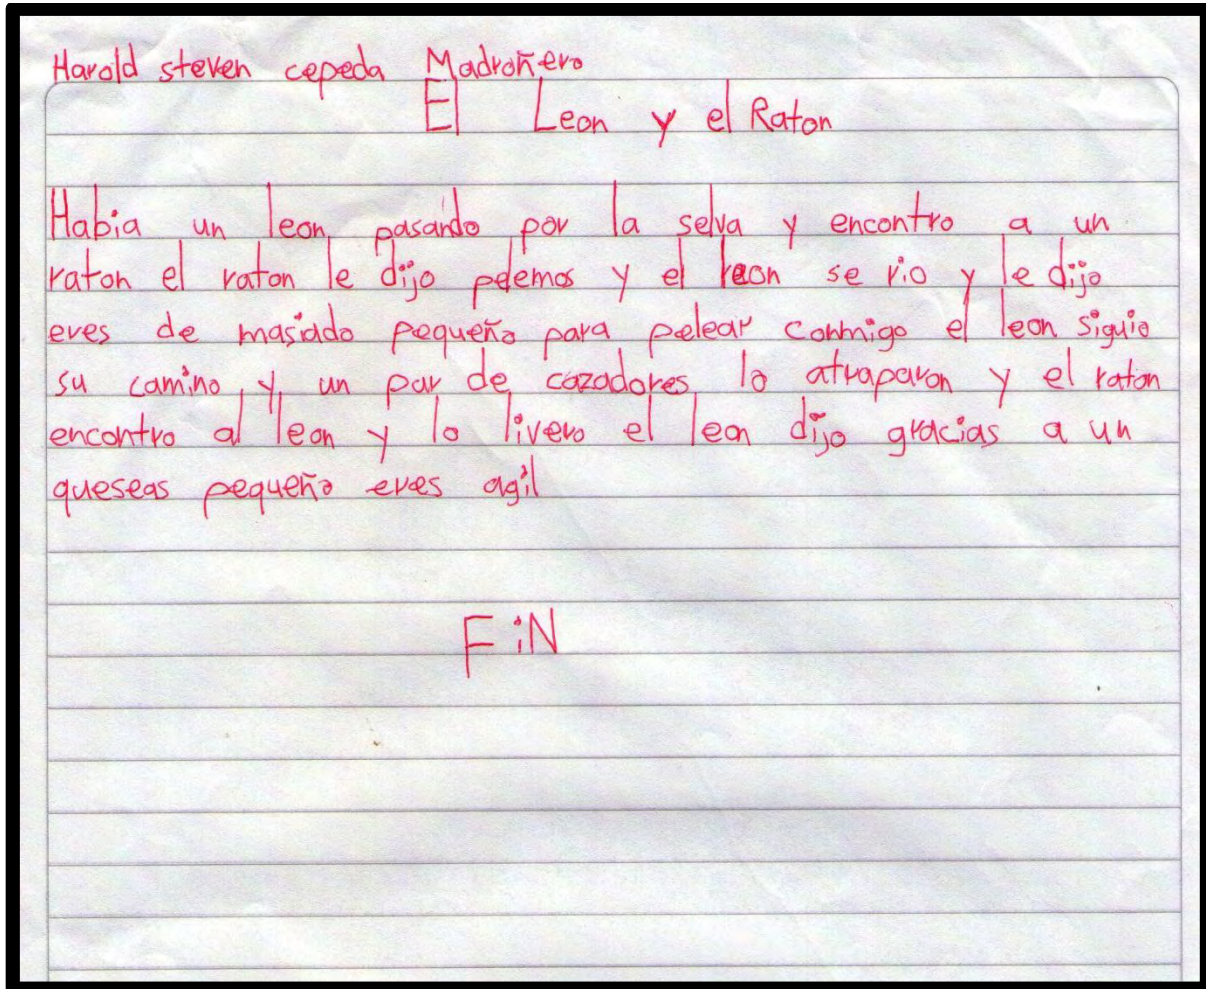 Harold steven cepeda Madroñero
El Leon y el Raton
Habia un leon pasando por la selva y encontro a un
raton el raton le dijo pelemos y el leon se rio y le dijo
eres de masiado pequeño para pelear conmigo el leon siguio
su camino y un par de cazadores lo atraparon y el raton
encontro al leon y lo livero el leon dijo gracias a un
queseas pequeño eres agil
FiN